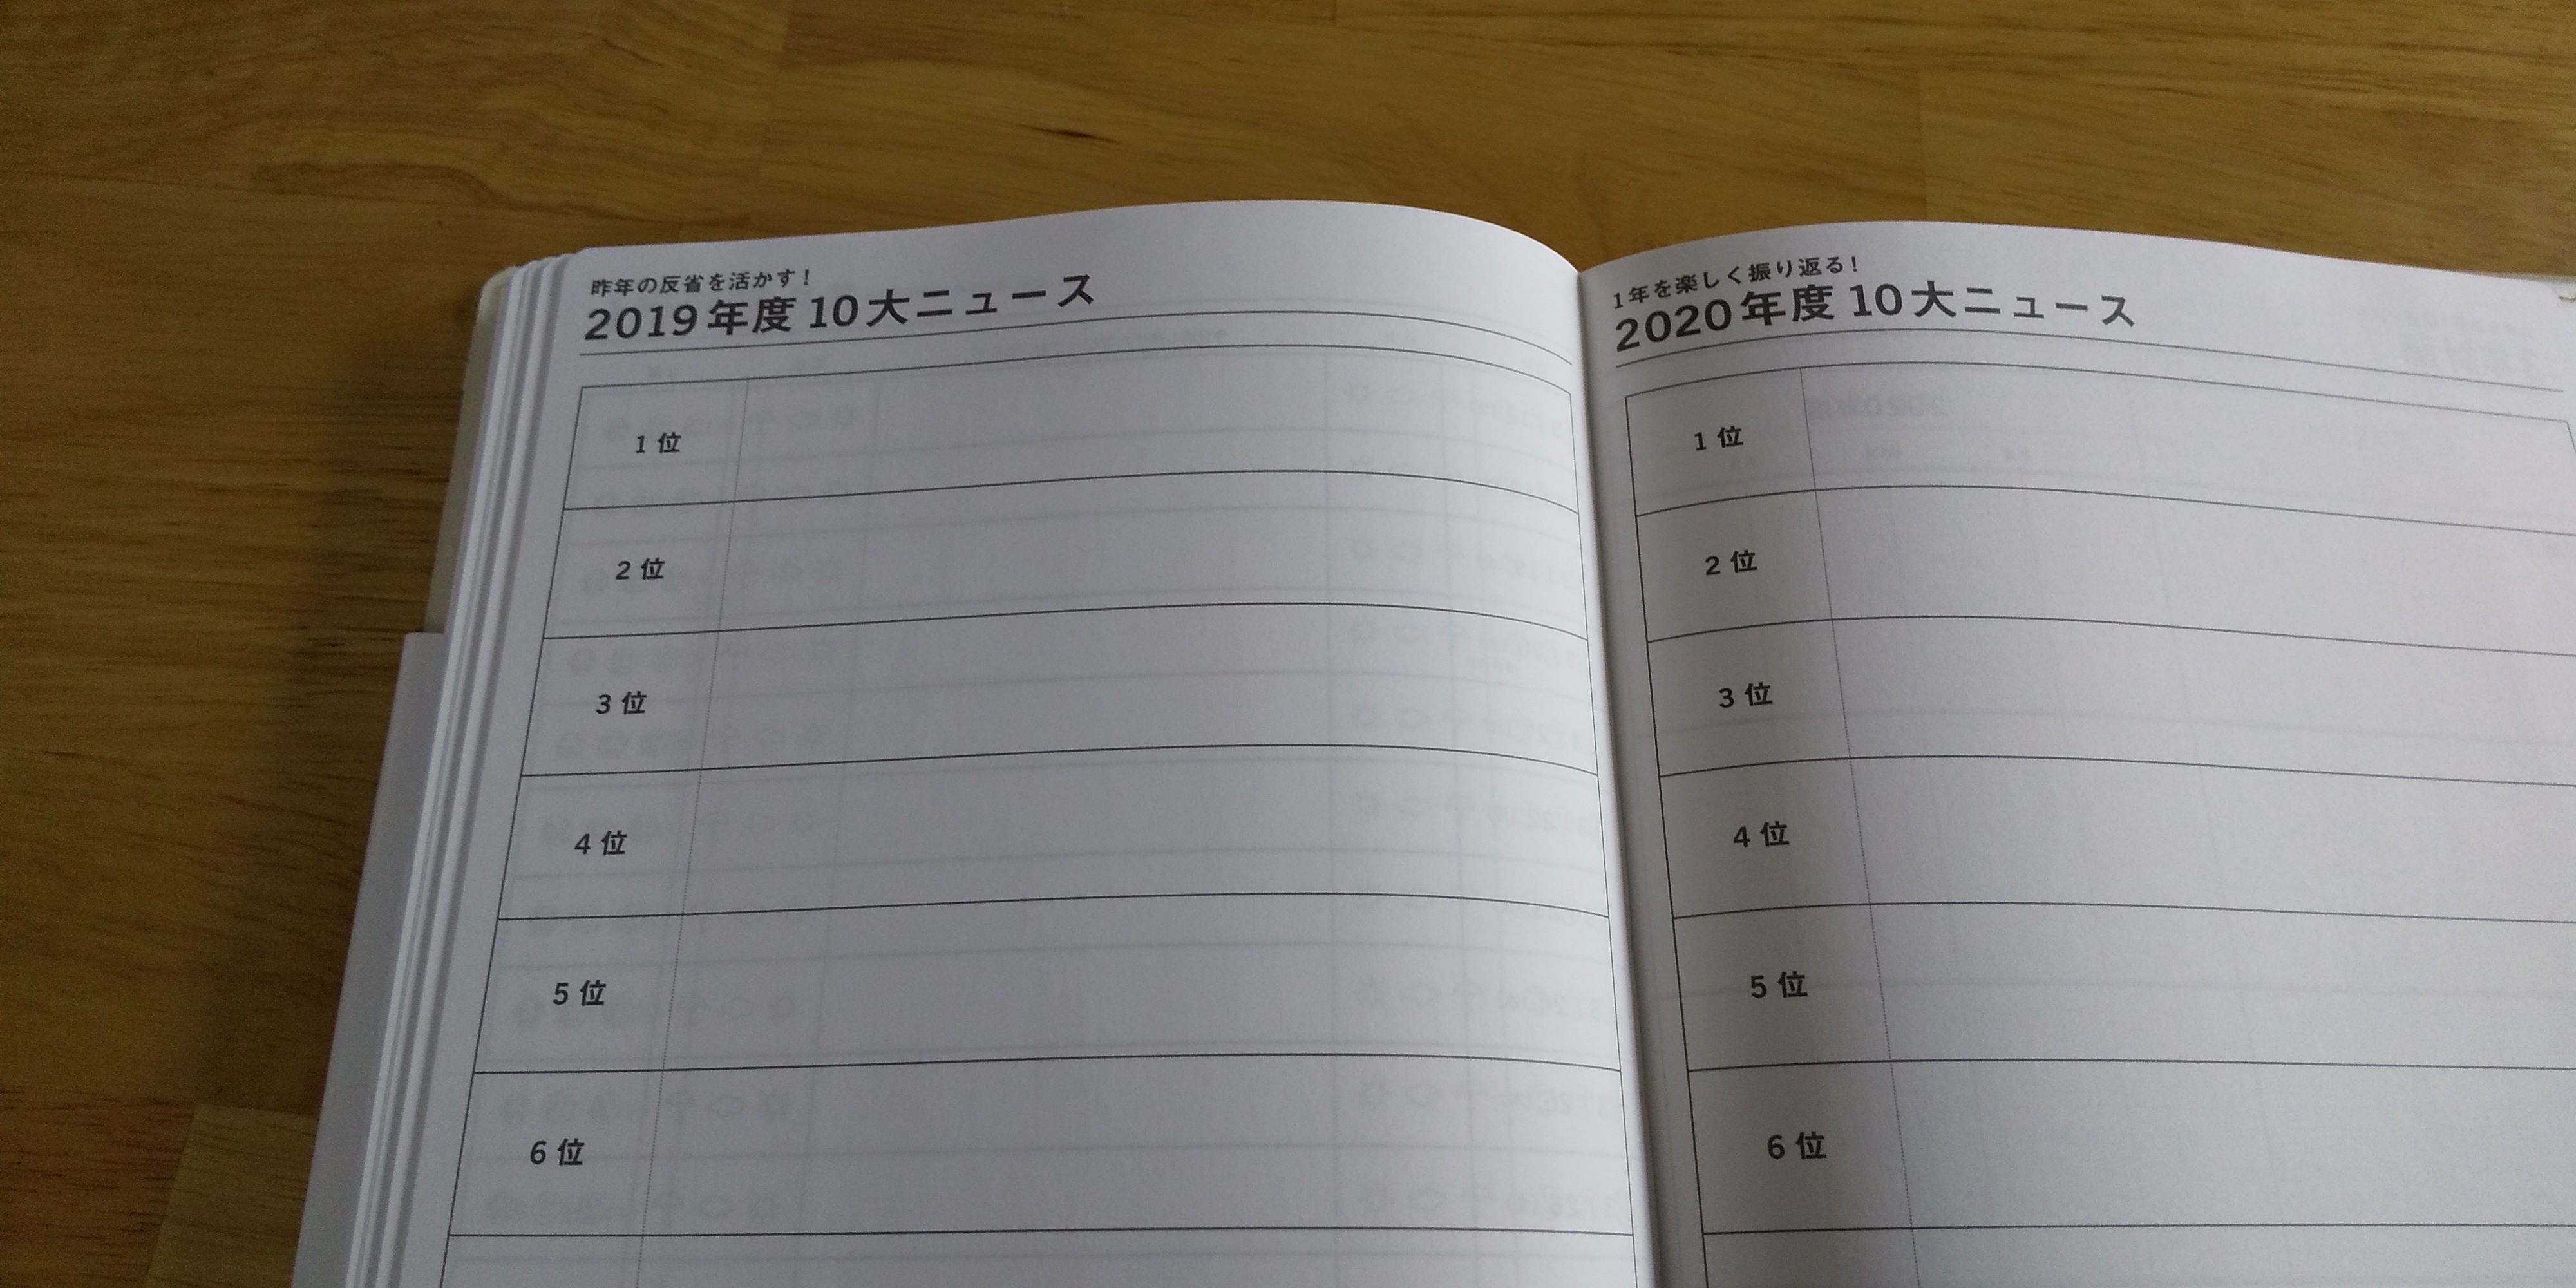 昨年の反省を活かす!
2019年度10大ニュース
1位
2位
3位
4位
5位
6位
1年を楽しく振り返る!
2020年度10大ニュース
1位
2位
3位
4位
5位
6位